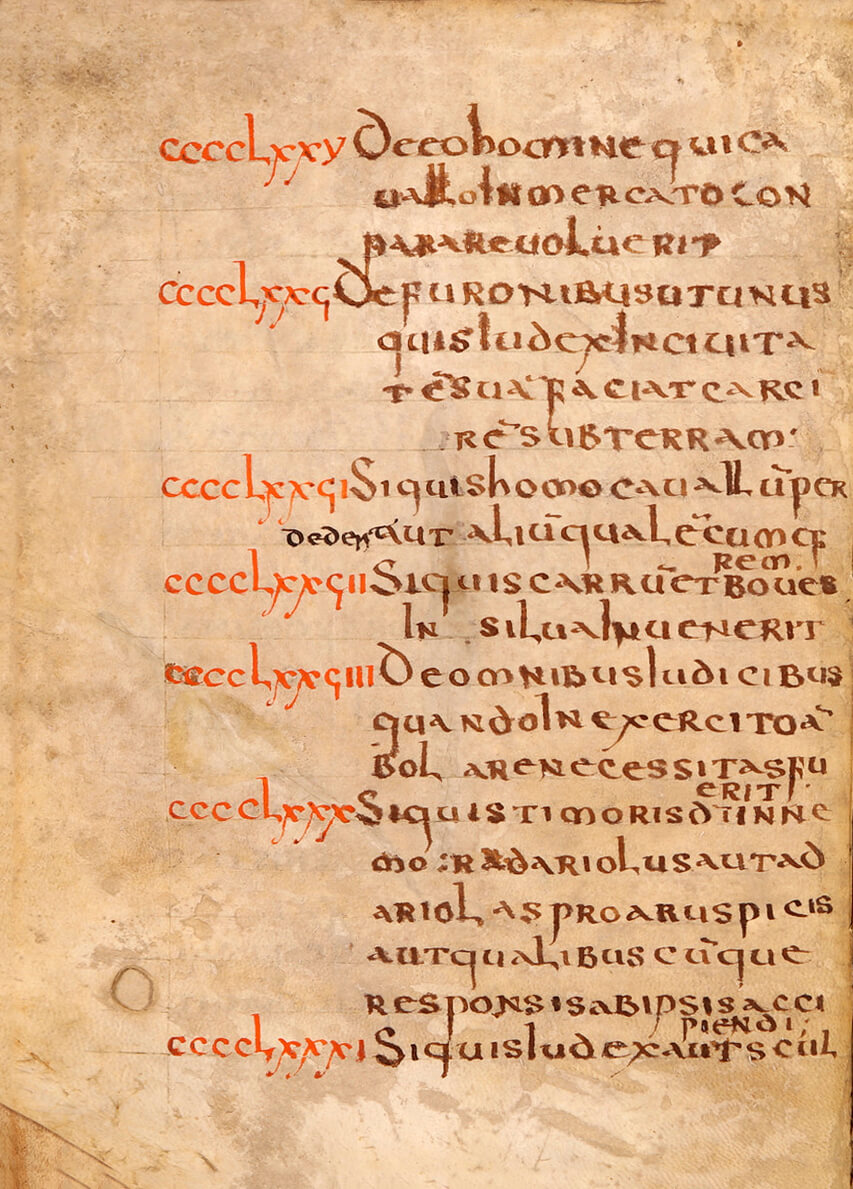 ccccLxxv De eo homine qui ca
uallo In mercato con
parare uoluerit
ccccLxxϛ De furonibus ut unus
quis Iudex In ciuita
tē suā faciat carci
rē subterram·
ccccLxxϛI Si quis homo cauallū per
dederit aut aliū qualēcumq;
ccccLxxϛII Si quis carrū et boues
rem.
In silua Inuenerit
ccccLxxϛIII De omnibus Iudicibus
quando In exercito ā
bolare necessitas fu
erit·
ccccLxxx Si quis timoris dī Inne
mor ad ariolus aut ad
ariolas pro aruspiciis
aut qualibuscūque
responsis ab ipsis acci
piendi;
ccccLxxxI Si quis Iudex aut scul